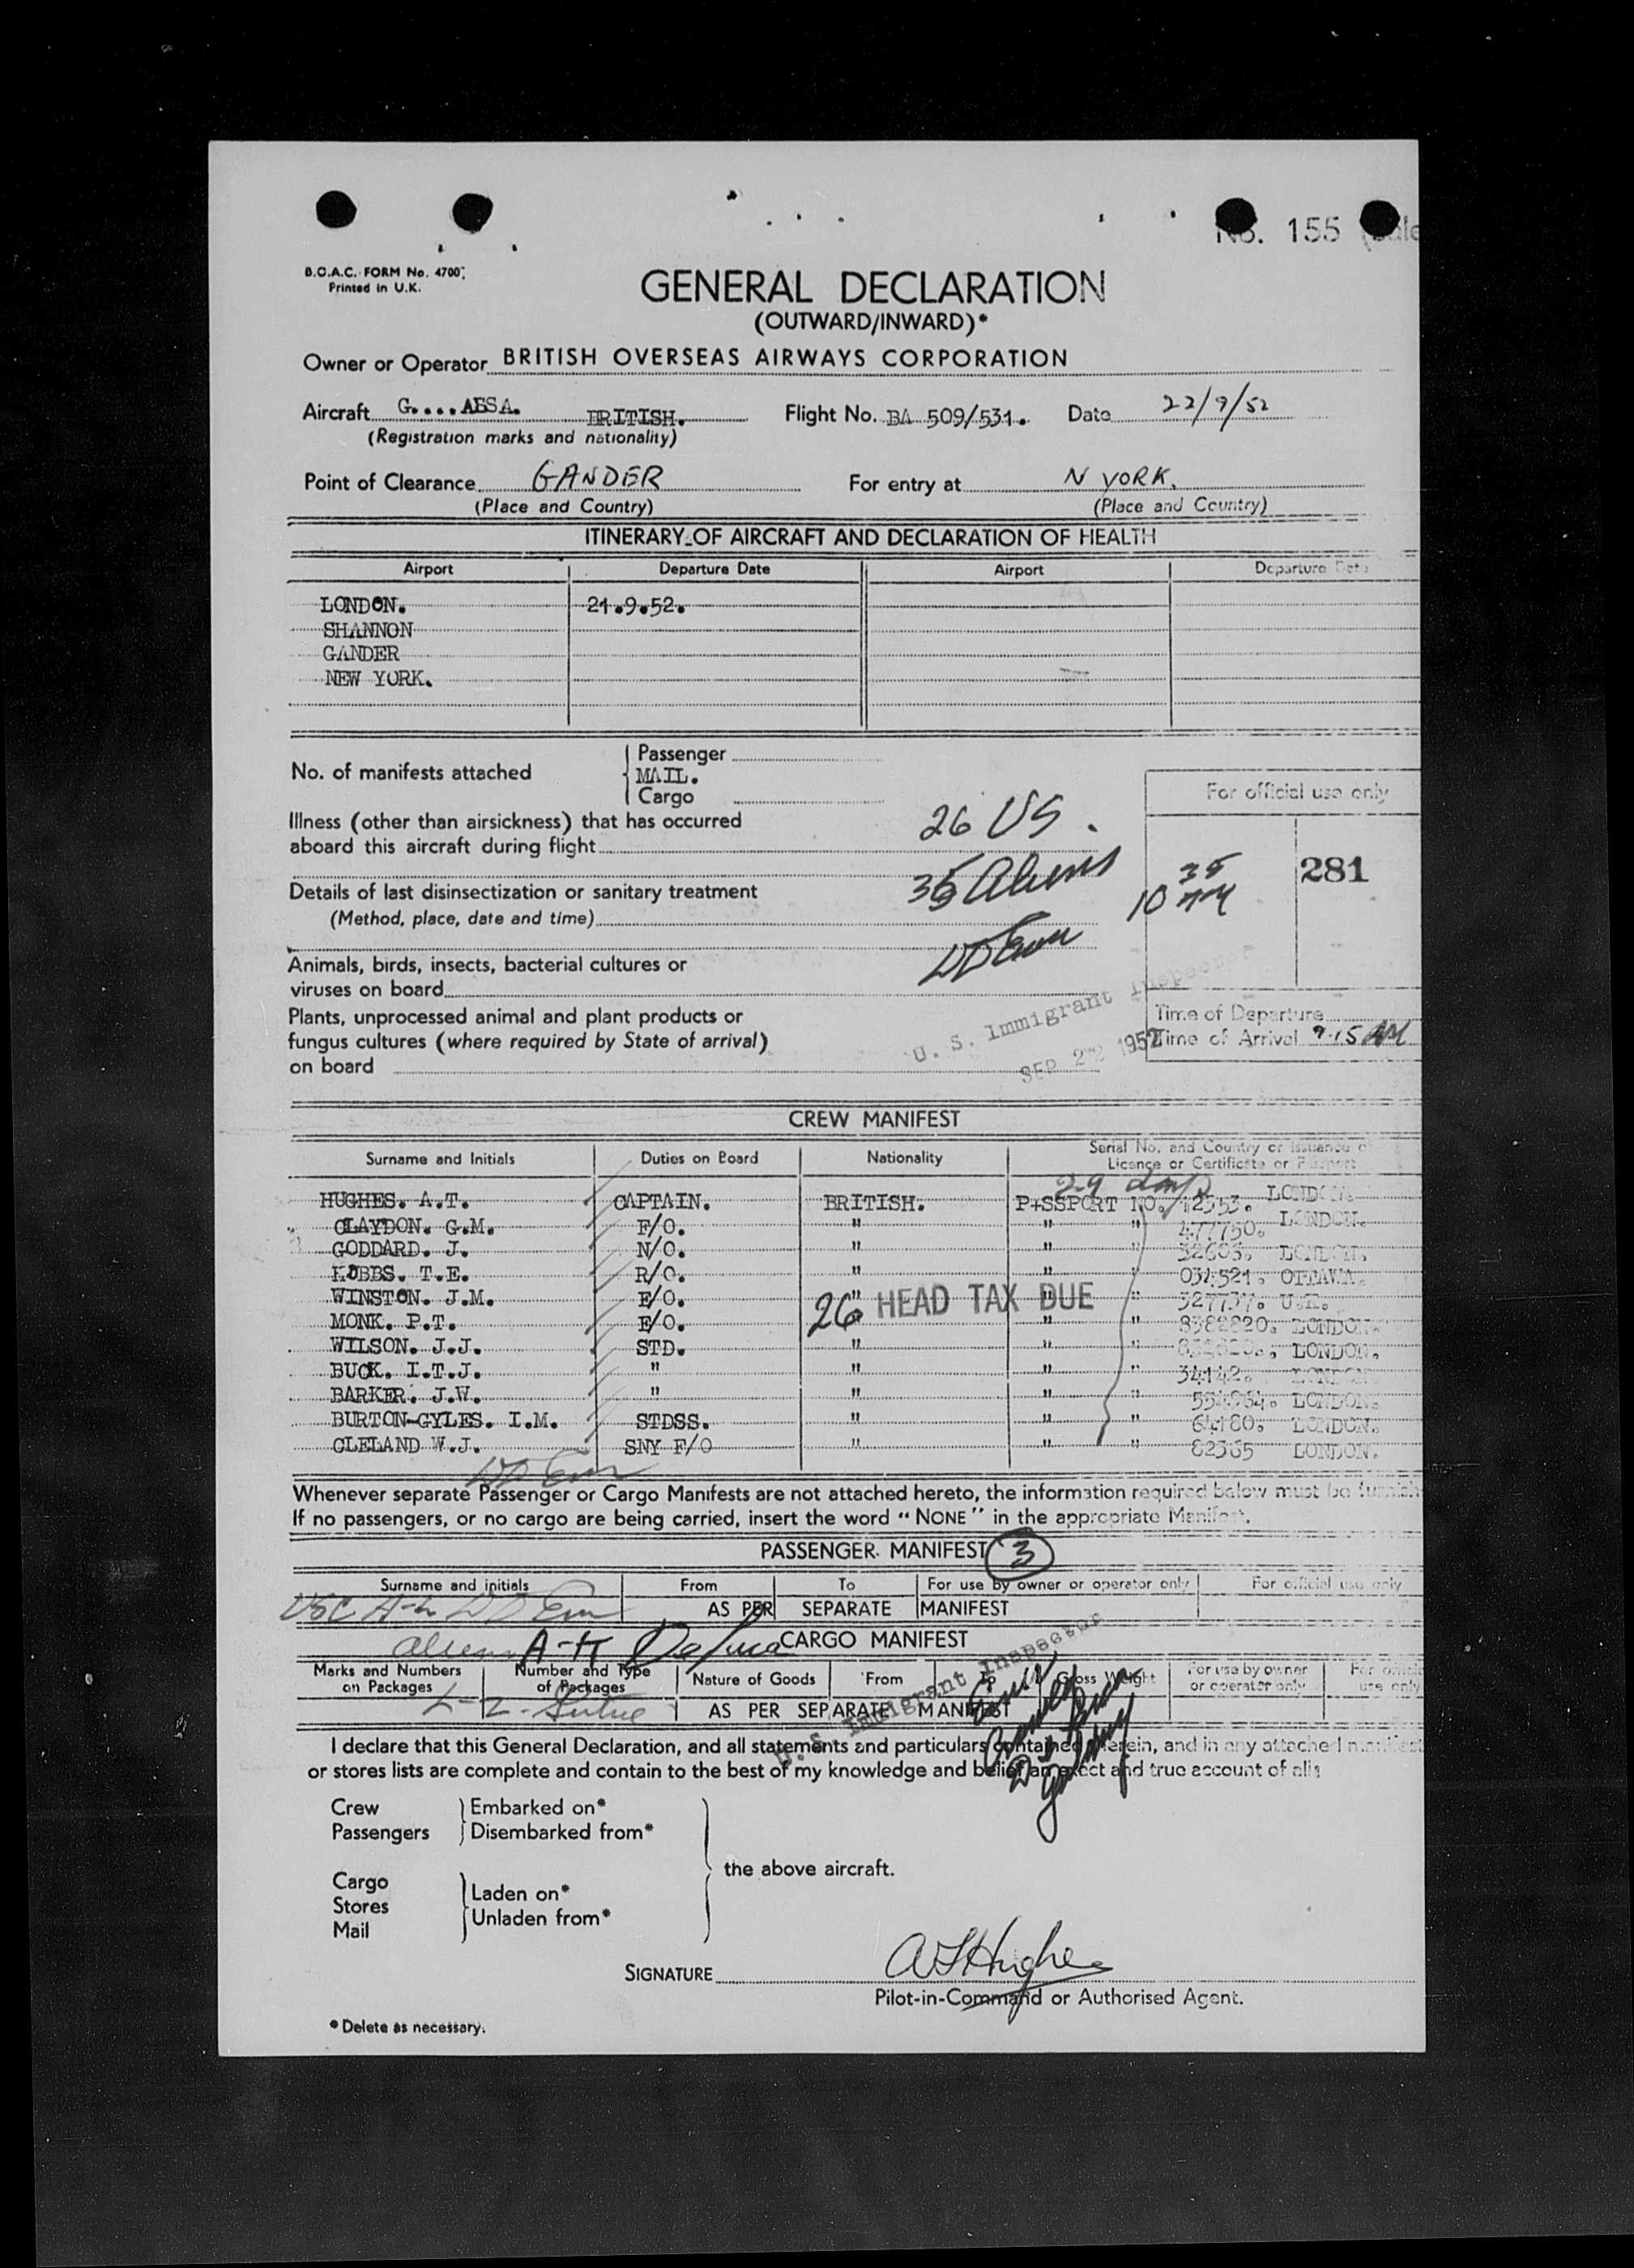 No. 155
B.O.A.C. FORM No. 4700
Printed in U.K.
GENERAL DECLARATION
(OUTWARD/INWARD)*
Owner or Operator BRITISH OVERSEAS AIRWAYS CORPORATION
Aircraft G....ABSA. BRITISH. Flight No. BA 509/531. Date 22/9/52
(Registration marks and nationality)
Point of Clearance GANDER For entry at N YORK.
(Place and Country) (Place and Country)
ITINERARY OF AIRCRAFT AND DECLARATION OF HEALTH
Airport Departure Date Airport Departure Date
LONDON. 21.9.52.
SHANNON
GANDER
NEW YORK.
No. of manifests attached
Passenger
MAIL.
Cargo
For official use only
Illness (other than airsickness) that has occurred
aboard this aircraft during flight
26 US.
35 Aliens
10 35 AM
281
Details of last disinsectization or sanitary treatment
(Method, place, date and time)
Animals, birds, insects, bacterial cultures or
viruses on board
Plants, unprocessed animal and plant products or
fungus cultures (where required by State of arrival)
on board
U. S. Immigrant Inspector
SEP 22 1952
Time of Departure
Time of Arrival 9.15 AM
CREW MANIFEST
Surname and Initials Duties on Board Nationality Serial No. and Country of Issuance of
Licence or Certificate or Passport
HUGHES. A.T. CAPTAIN. BRITISH. P+SSPORT NO. 12553. LONDON.
CLAYDON. G.M. F/O. " " " 477750. LONDON.
GODDARD. J. N/O. " " " 32603. LONDON.
HOBBS. T.E. R/O. " " " OTTAWA.
WINSTON. J.M. E/O. " " " U.K.
MONK. P.T. E/O. " " " LONDON.
26 HEAD TAX DUE
WILSON. J.J. STD. " " " LONDON.
BUCK. I.T.J. " " " " 34142. LONDON.
BARKER. J.W. " " " " LONDON.
BURTON-GYLES. I.M. STDSS. " " " 64180. LONDON.
CLELAND W.J. SNY F/O " " " 82365 LONDON.
Whenever separate Passenger or Cargo Manifests are not attached hereto, the information required below must be furnish
If no passengers, or no cargo are being carried, insert the word "NONE" in the appropriate Manifest.
PASSENGER MANIFEST 3
Surname and initials From To For use by owner or operator only For official use only
AS PER SEPARATE MANIFEST
USC A-
Aliens A-K
CARGO MANIFEST
Marks and Numbers
on Packages
Number and Type
of Packages
Nature of Goods From To Gross Weight
For use by owner
or operator only
For official
use only
L-Z
AS PER SEPARATE MANIFEST
U. S. Immigrant Inspector
I declare that this General Declaration, and all statements and particulars contained herein, and in any attached manifest
or stores lists are complete and contain to the best of my knowledge and belief an exact and true account of all:
Crew Embarked on*
Passengers Disembarked from*
the above aircraft.
Cargo
Stores
Mail
Laden on*
Unladen from*
SIGNATURE A T Hughes
Pilot-in-Command or Authorised Agent.
* Delete as necessary.